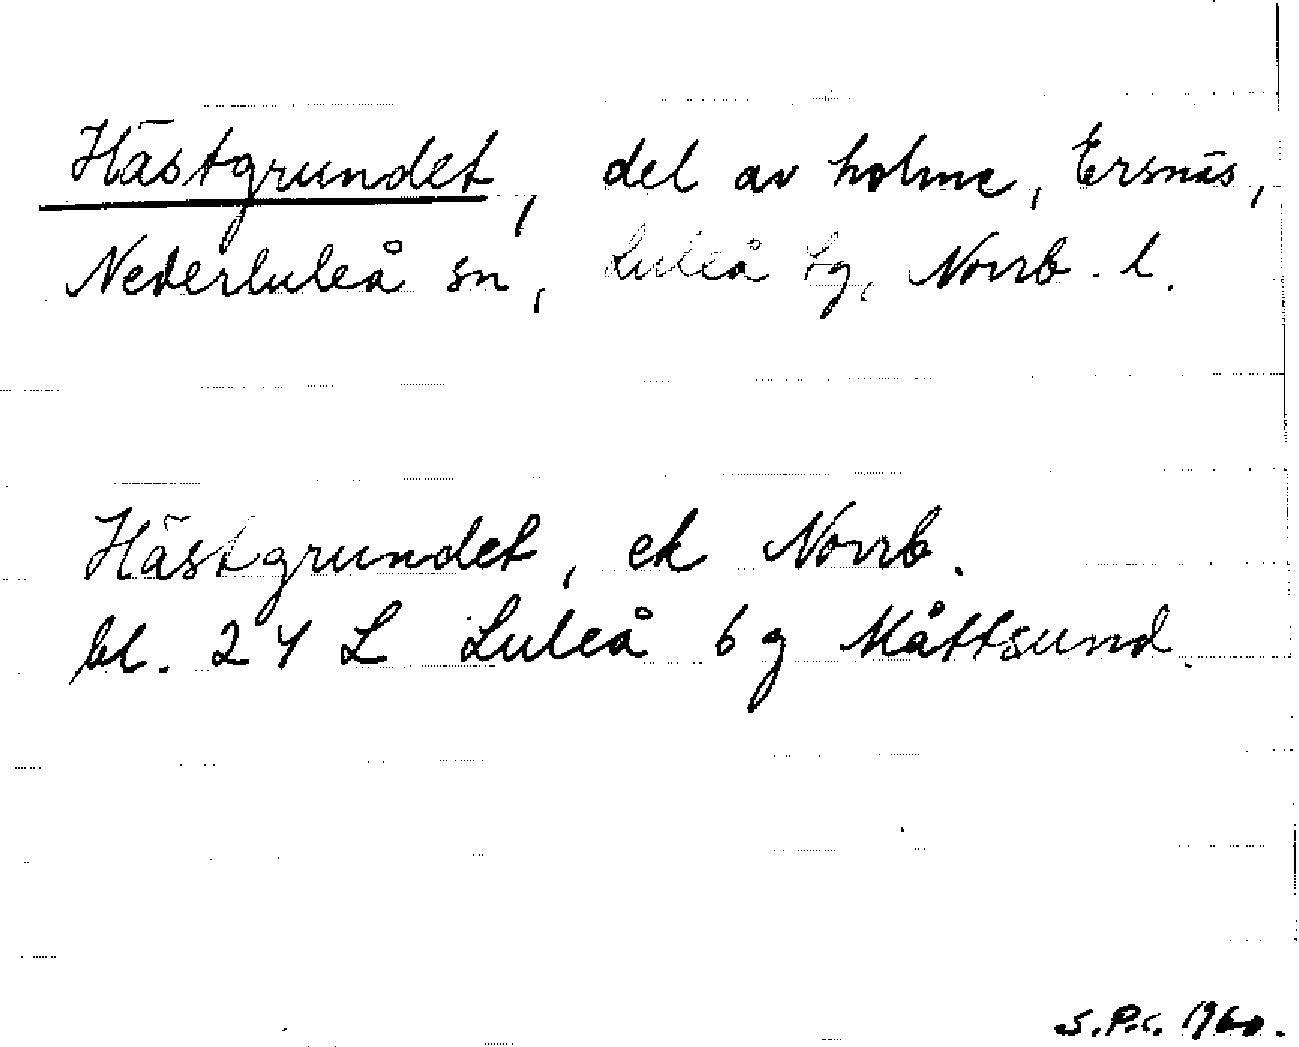 Hästgrundet, del av holme, Ersnäs,
Nederluleå sn, Luleå tg, Norrb. l.
Hästgrundet, ek Norrb.
bl. 24 L Luleå 6 g Måttsund.
S.P.s. 1960.